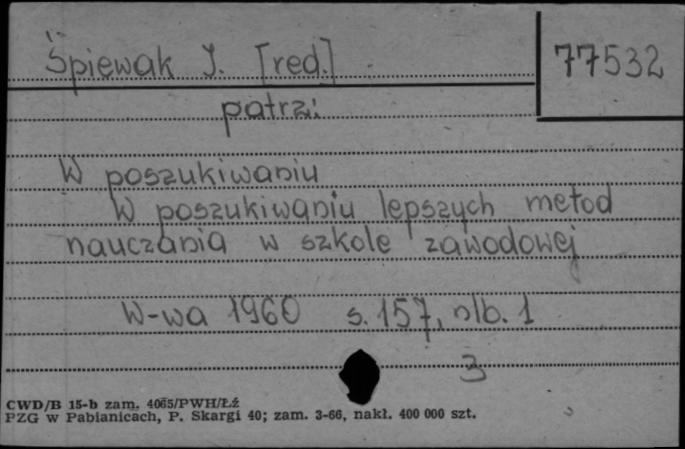 Śpiewak J. [red.]
77532
patrz:
W poszukiwaniu
W poszukiwaniu lepszych metod
nauczania w szkole zawodowej
W-wa 1960 s. 157, nlb. 1
3
CWD/B 15-b zam. 4065/PWH/Łź
PZG w Pabianicach, P. Skargi 40; zam. 3-66, nakł. 400 000 szt.